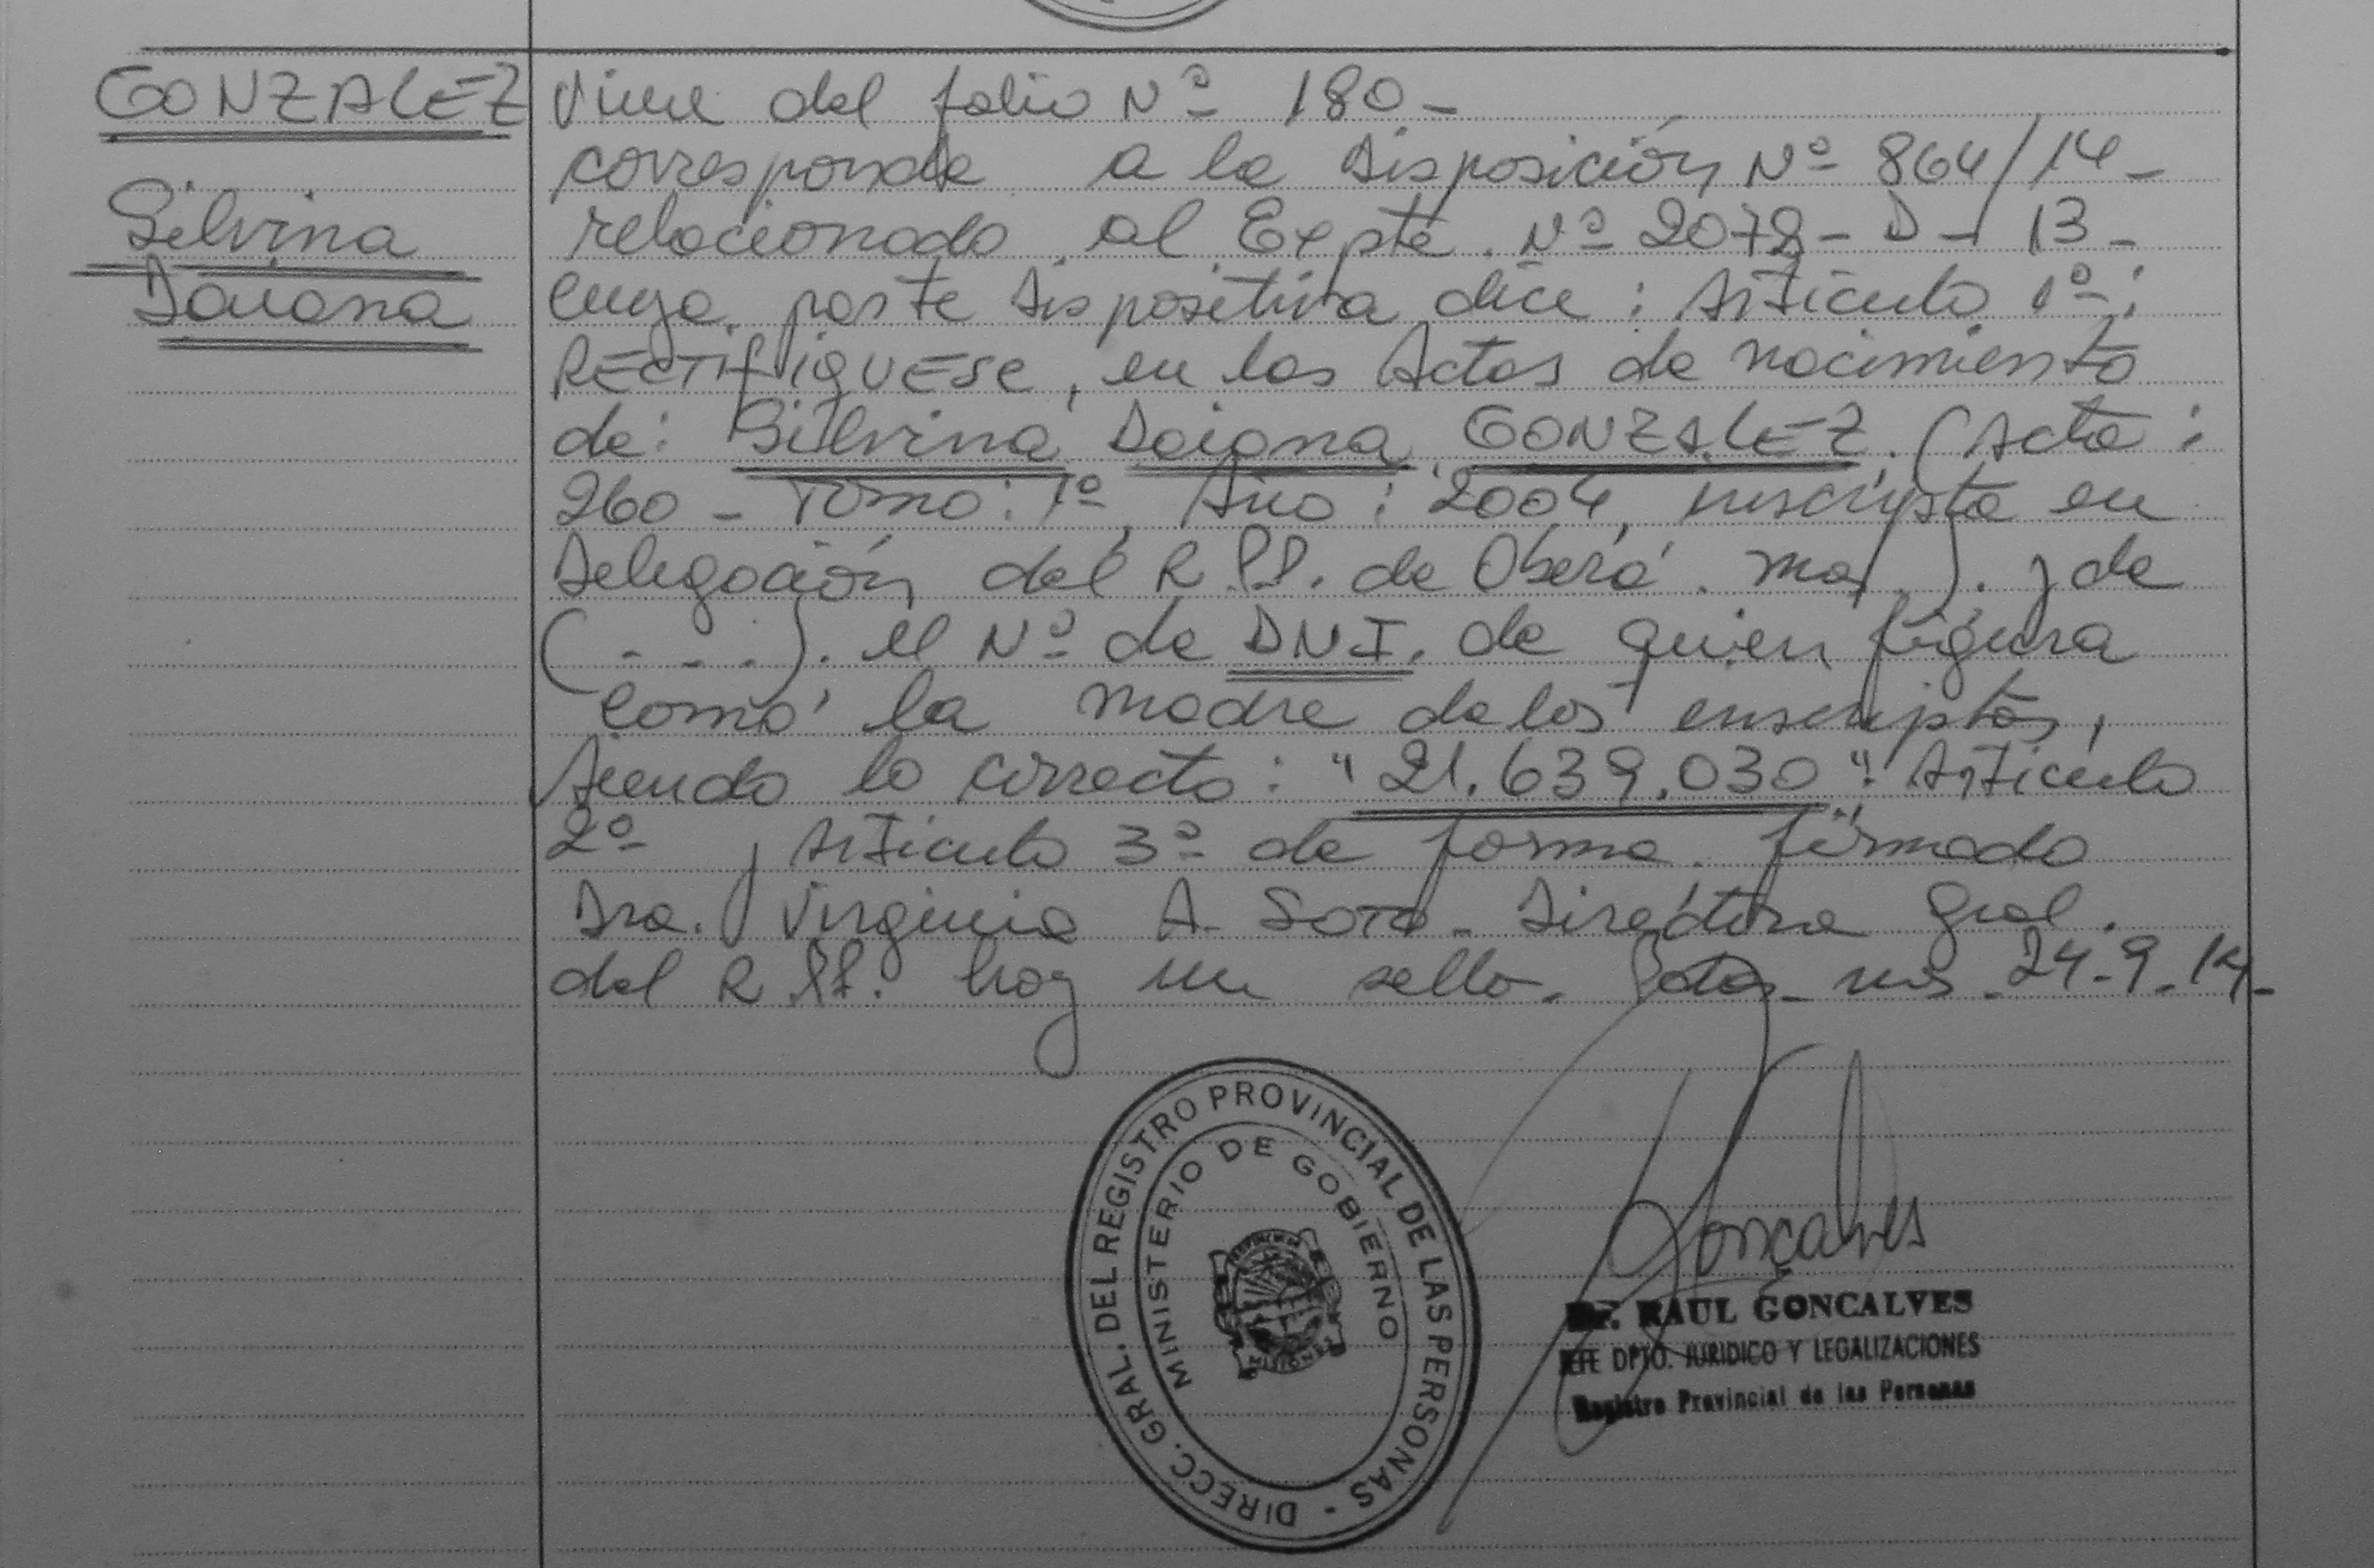 GONZALEZ
Silvina
Daiana
Viene del folio Nº 180-
corresponde a la Disposición Nº 864/14-
relacionado al Expte. Nº 2072-D-13-
cuya parte Dispositiva dice: Artículo 1º:
RECTIFIQUESE, en las Actas de nacimiento
de: Silvina Daiana GONZALEZ. (Acta:
260 - Tomo: 1º, Año: 2004, inscripta en
Delegación del R.P.P. de Oberá. Mes.). y de
(- - -). el Nº de DNI. de quien figura
como la madre de los inscriptos,
siendo lo correcto: "21.639.030". Artículo
2º y Artículo 3º de forma. firmado
Dra. Virginia A. Soto. Directora Gral.
del R.P.P. hay un sello. Pdas. Mns. 24-9-14-
DIRECC. GRAL. DEL REGISTRO PROVINCIAL DE LAS PERSONAS -
MINISTERIO DE GOBIERNO
MISIONES
Gonçalves
Dr. RAUL GONCALVES
JEFE DPTO. JURIDICO Y LEGALIZACIONES
Registro Provincial de las Personas